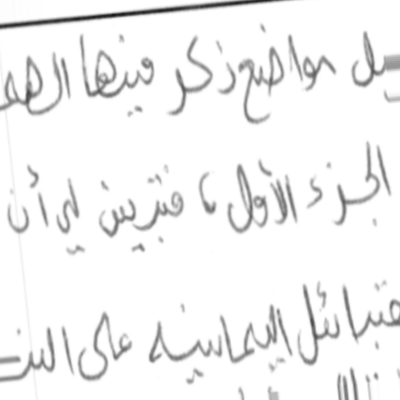 مواضع ذكر فيها
الجزء الأول، فتبين لي أن
قبائل اليمانية على